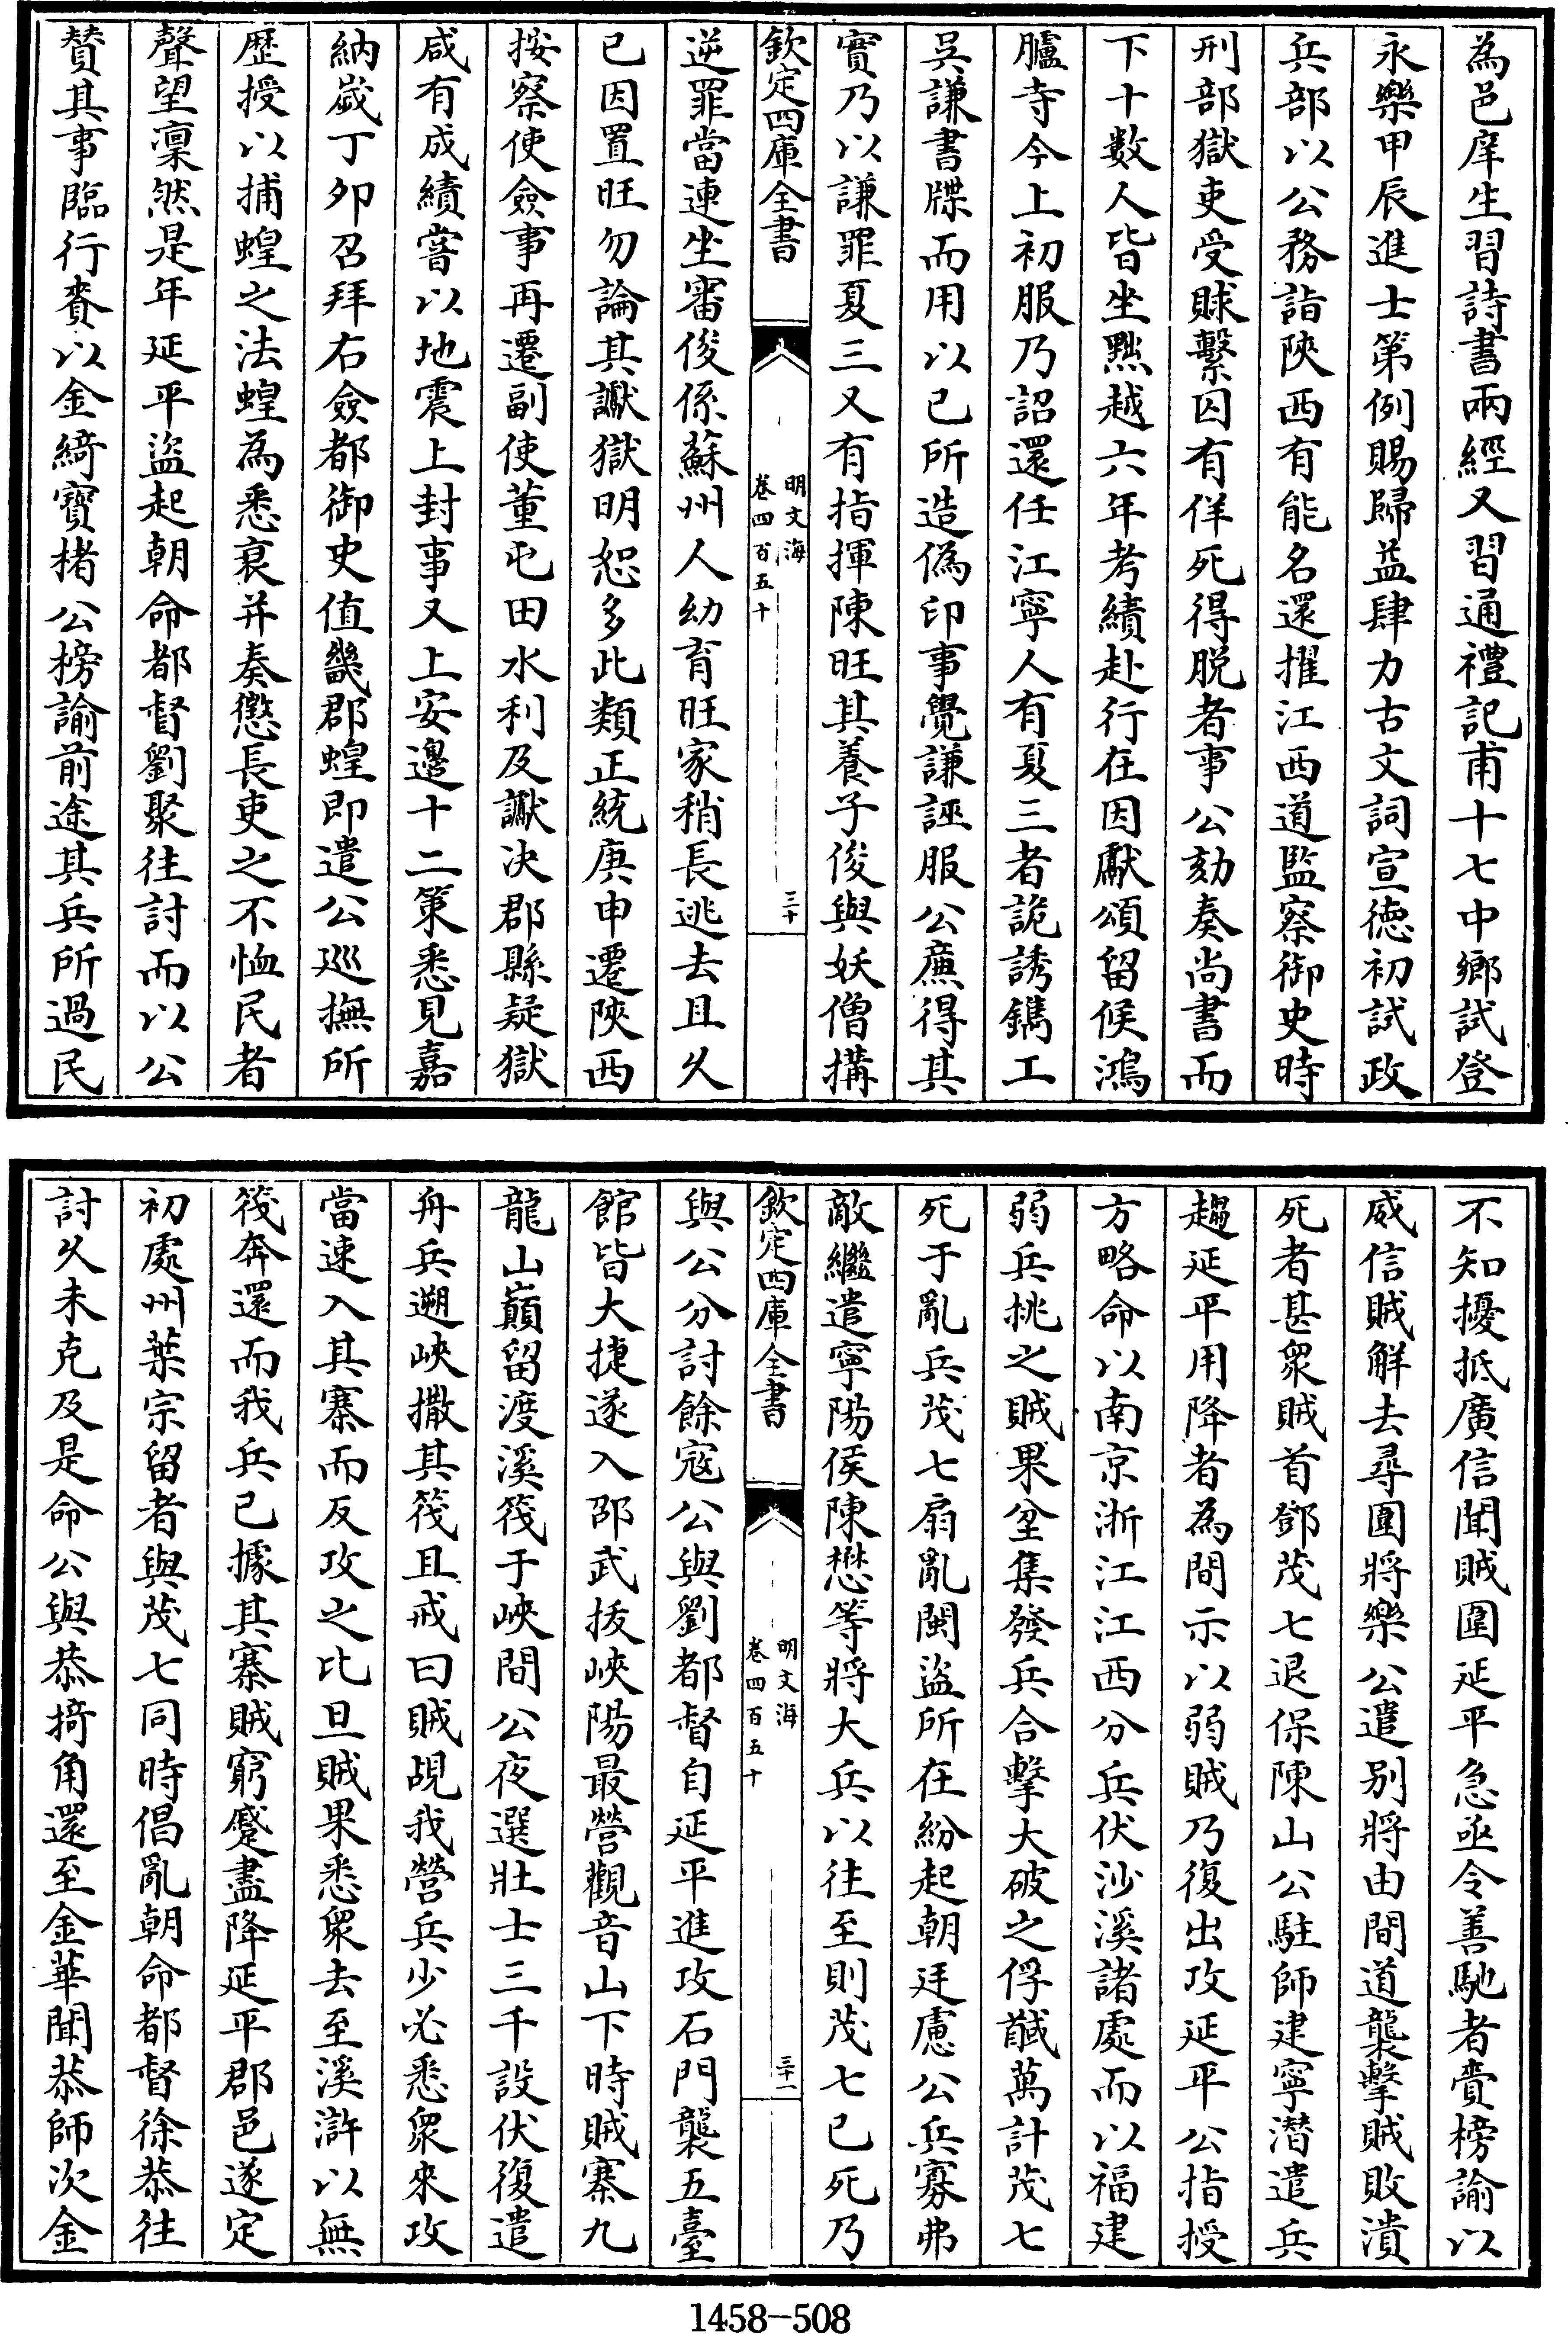 為邑庠生習詩書兩經又習通禮記甫十七中鄉試登
永樂甲辰進士第例賜歸益肆力古文詞宣徳初試政
兵部以公務詣陜西有能名還擢江西道監察御史時
刑部獄吏受賕繫囚有佯死得脱者事公劾奏尚書而
下十數人皆坐黜越六年考績赴行在因獻頌留候鴻
臚寺今上初服乃詔還任江寧人有夏三者詭誘鐫工
吳謙書牒而用以已所造偽印事覺謙誣服公廉得其
實乃以謙罪夏三又有指揮陳旺其養子俊與妖僧搆
欽定四庫全書
明文海
卷四百五十
三十
逆罪當連坐審俊係蘇州人幼育旺家稍長逃去且久
已因置旺勿論其讞獄明恕多此類正統庚申遷陜西
按察使僉事再遷副使董屯田水利及讞决郡縣疑獄
咸有成績嘗以地震上封事又上安邊十二策悉見嘉
納嵗丁夘召拜右僉都御史值畿郡蝗即遣公巡撫所
歴授以捕蝗之法蝗為悉衰并奏懲長吏之不恤民者
聲望凜然是年延平盜起朝命都督劉聚往討而以公
賛其事臨行賚以金綺寶楮公榜諭前途其兵所過民
不知擾抵廣信聞賊圍延平急亟令善馳者賫榜諭以
威信賊觧去尋圍將樂公遣别將由間道襲擊賊敗潰
死者甚衆賊首鄧茂七退保陳山公駐師建寧潜遣兵
趨延平用降者為間示以弱賊乃復出攻延平公指授
方略命以南京浙江江西分兵伏沙溪諸處而以福建
弱兵桃之賊果坌集發兵合擊大破之俘馘萬計茂七
死于亂兵茂七扇亂閩盜所在紛起朝廷慮公兵寡弗
敵繼遣寧陽侯陳懋等將大兵以往至則茂七已死乃
欽定四庫全書
明文海
卷四百五十
三十一
與公分討餘寇公與劉都督自延平進攻石門襲五臺
館皆大捷遂入邵武拔峽陽最營觀音山下時賊寨九
龍山巔留渡溪筏于峽間公夜選壯士三千設伏復遣
舟兵遡峽撒其筏且戒曰賊覘我營兵少必悉衆來攻
當速入其寨而反攻之比旦賊果悉衆去至溪滸以無
筏奔還而我兵已據其寨賊窮蹙盡降延平郡邑遂定
初處州葉宗留者與茂七同時倡亂朝命都督徐恭往
討久未克及是命公與恭掎角還至金華聞恭師次金
1458-508